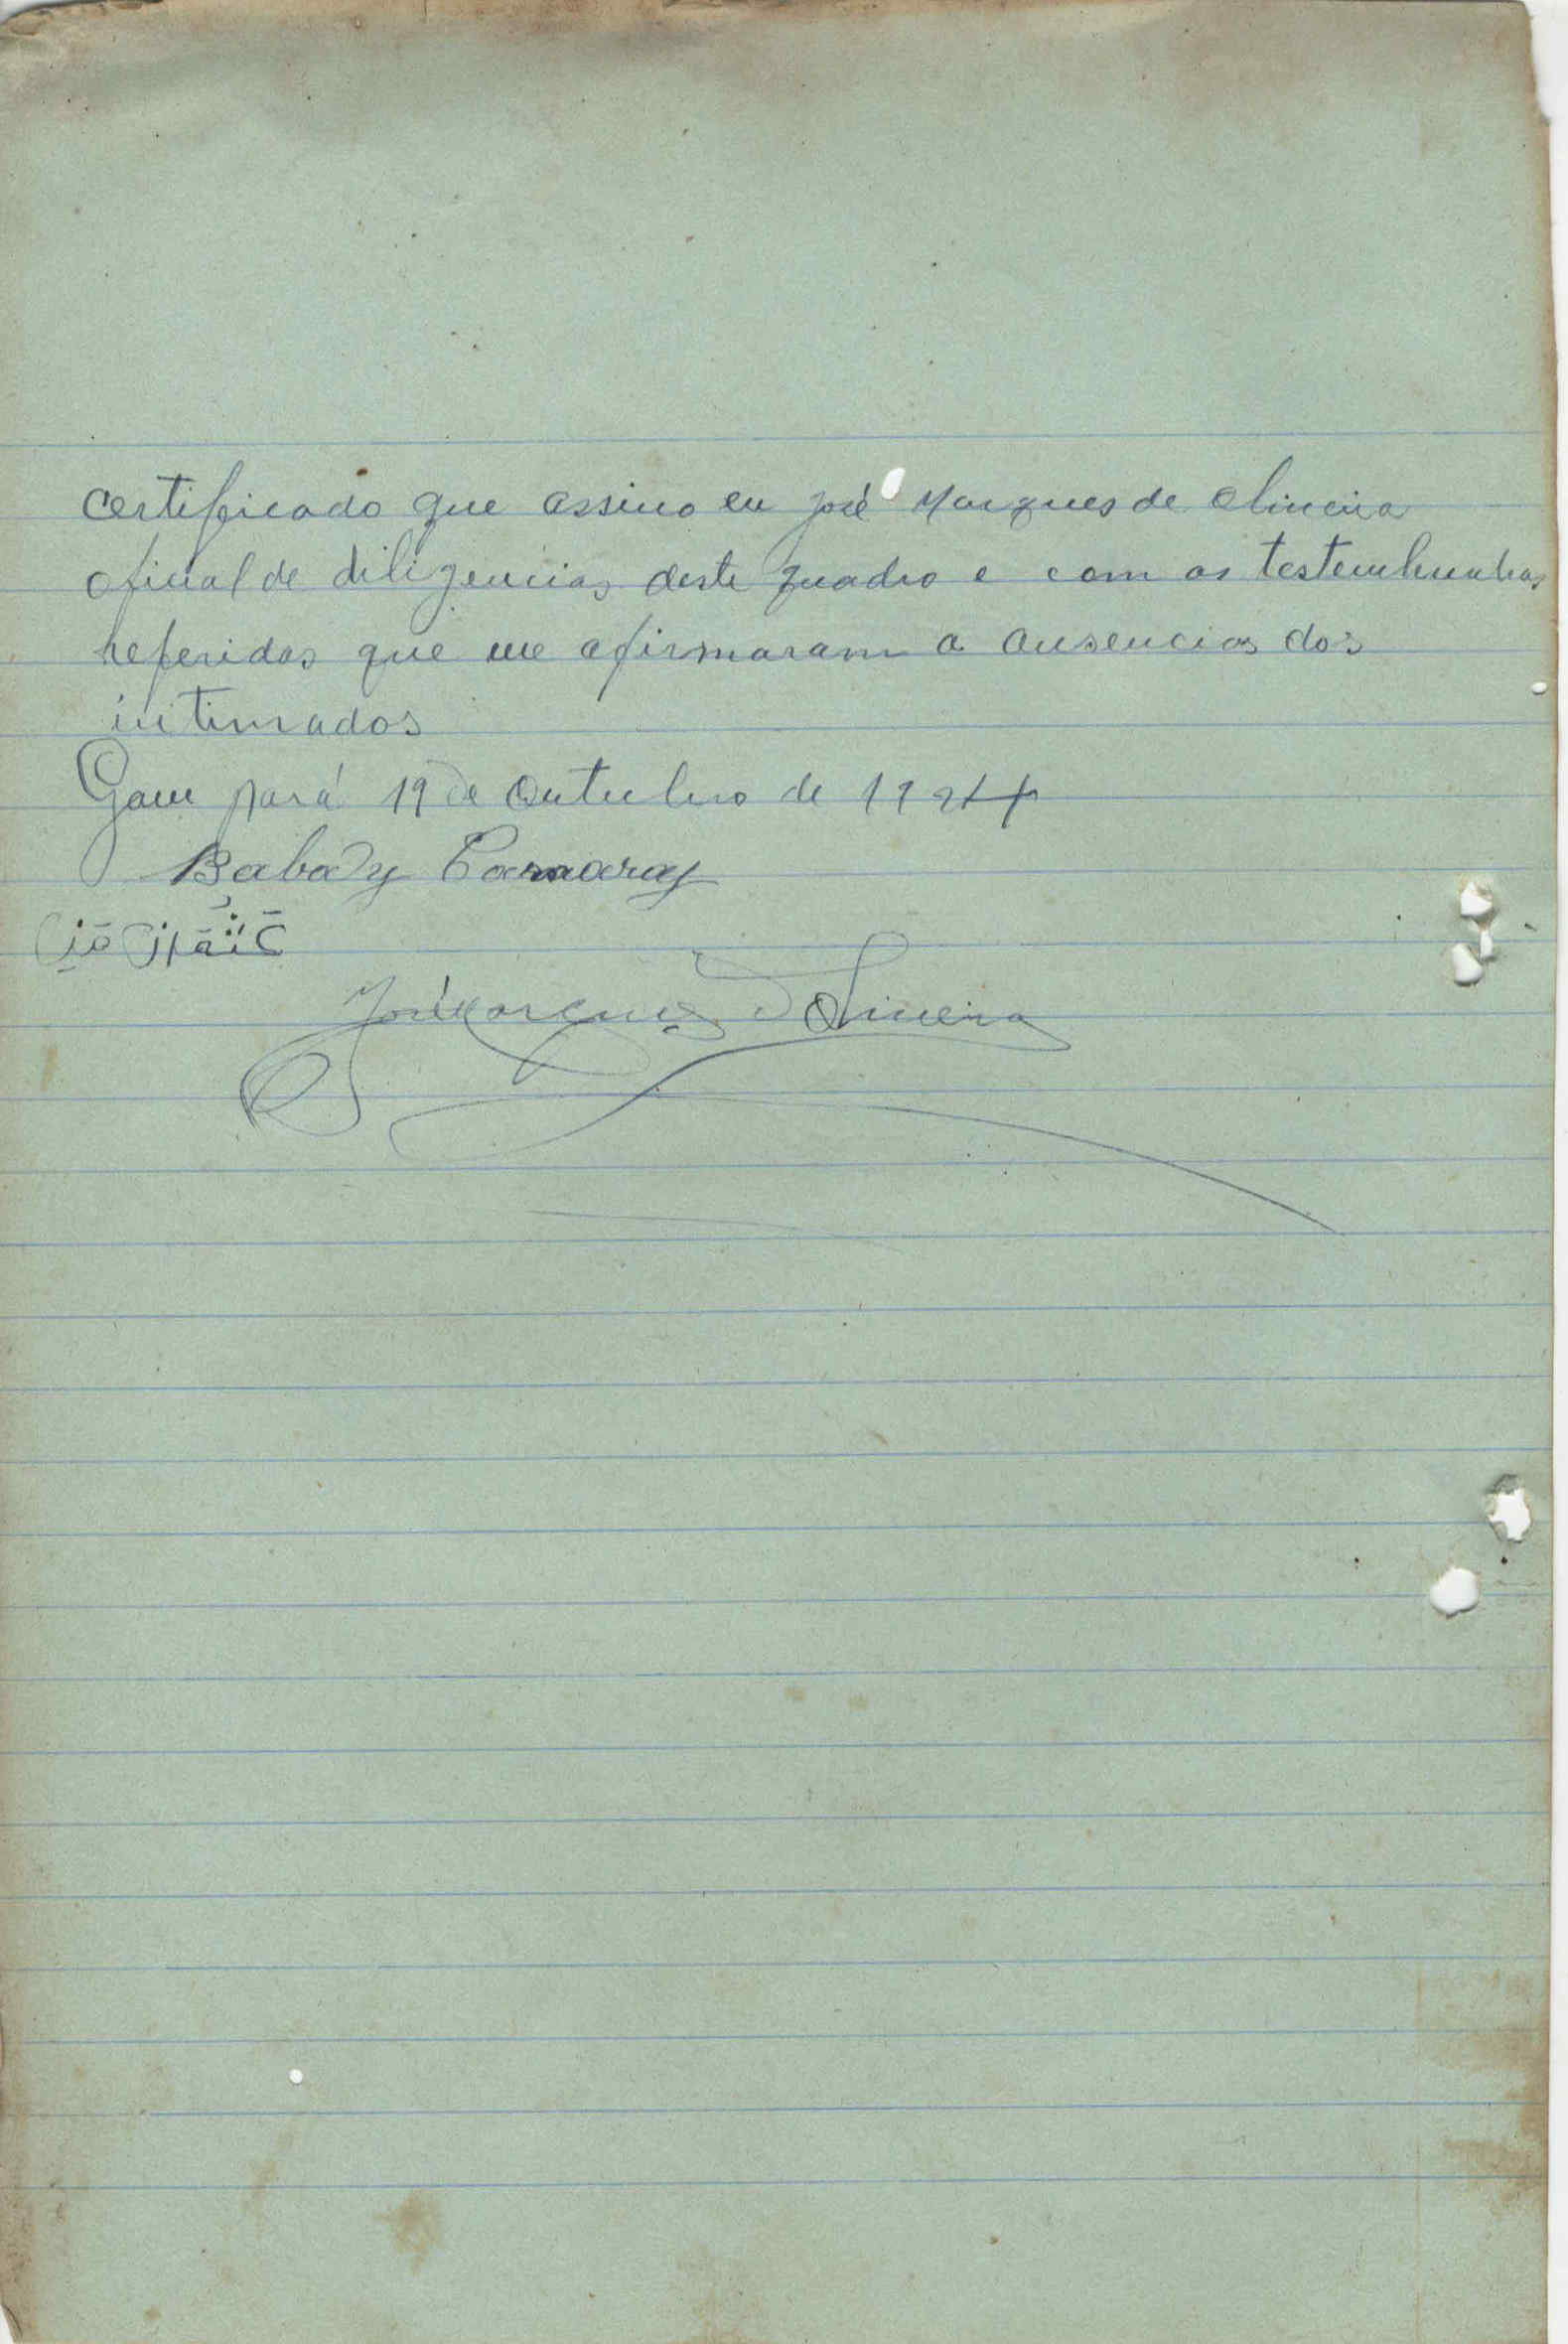 certificado que assino eu José Marques de Oliveira
oficial de diligencias deste quadro e com as testemunhas
referidas que me afirmaram a ausencias dos
intimados
Gam pará 19 de Outubro de 1924
Babady Camaray
José Marques d Oliveira